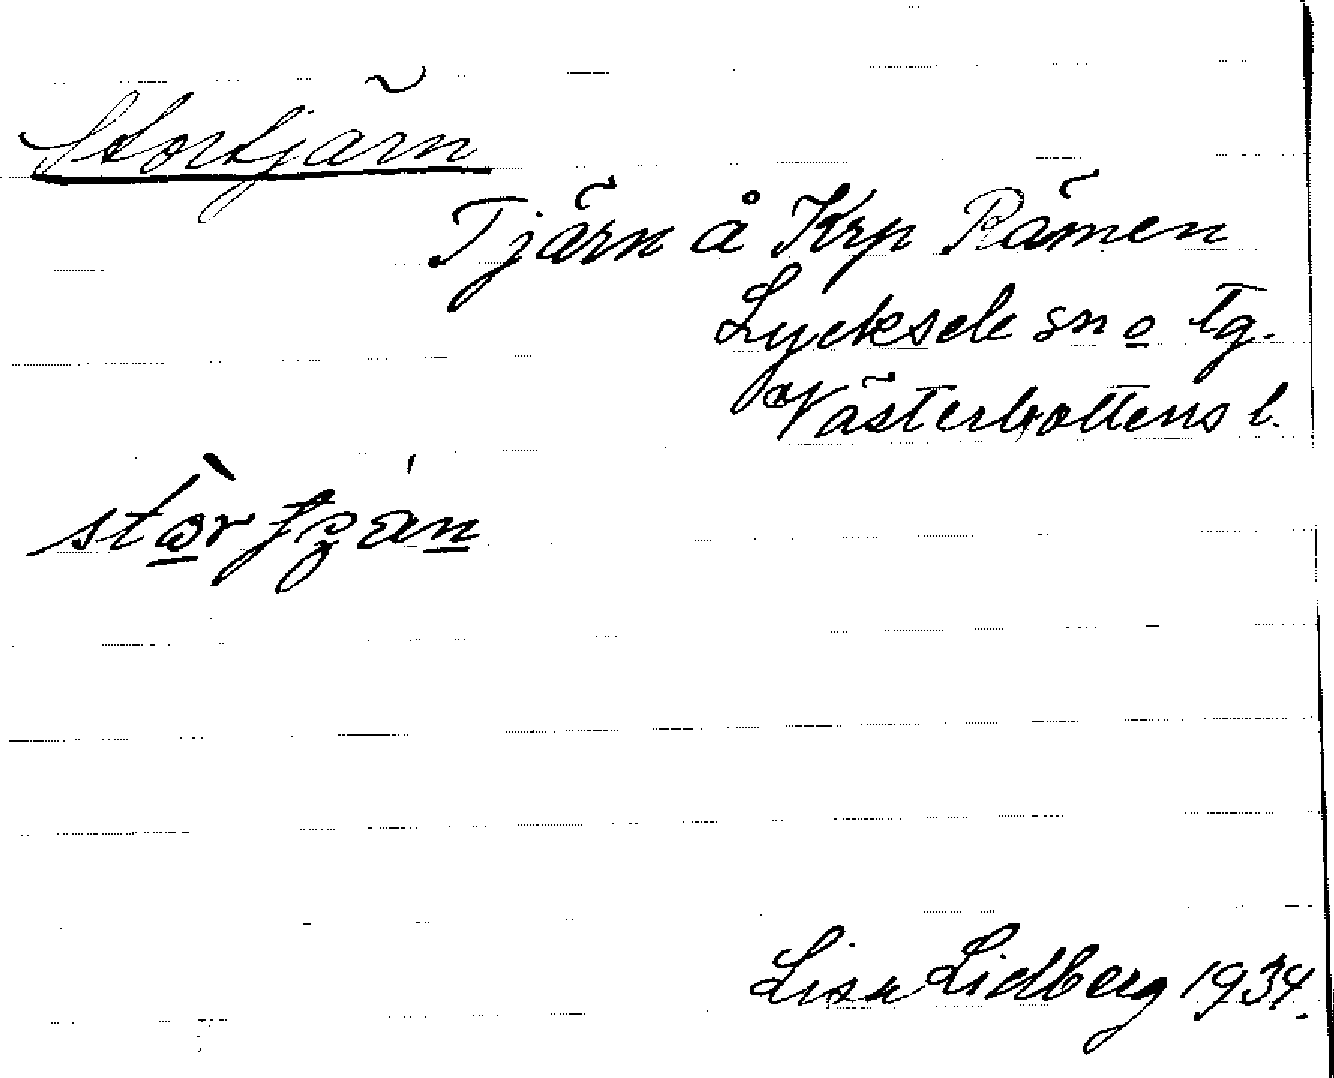 Stortjärn
Tjärn å Krp Rämen
Lycksele sn o tg.
Västerbottens l.
Lisa Lidberg 1934.